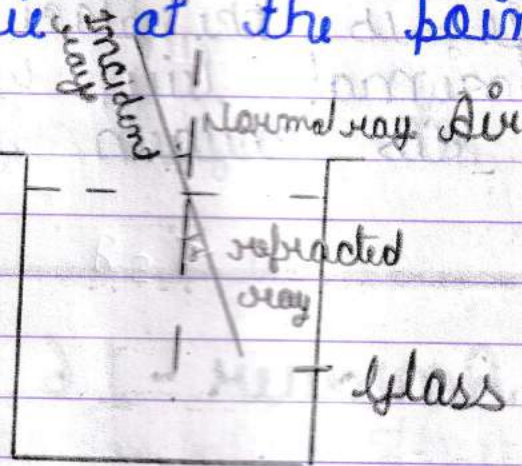 at the poin
Incident
ray
Normal ray Air
i
r
refracted
ray
Glass